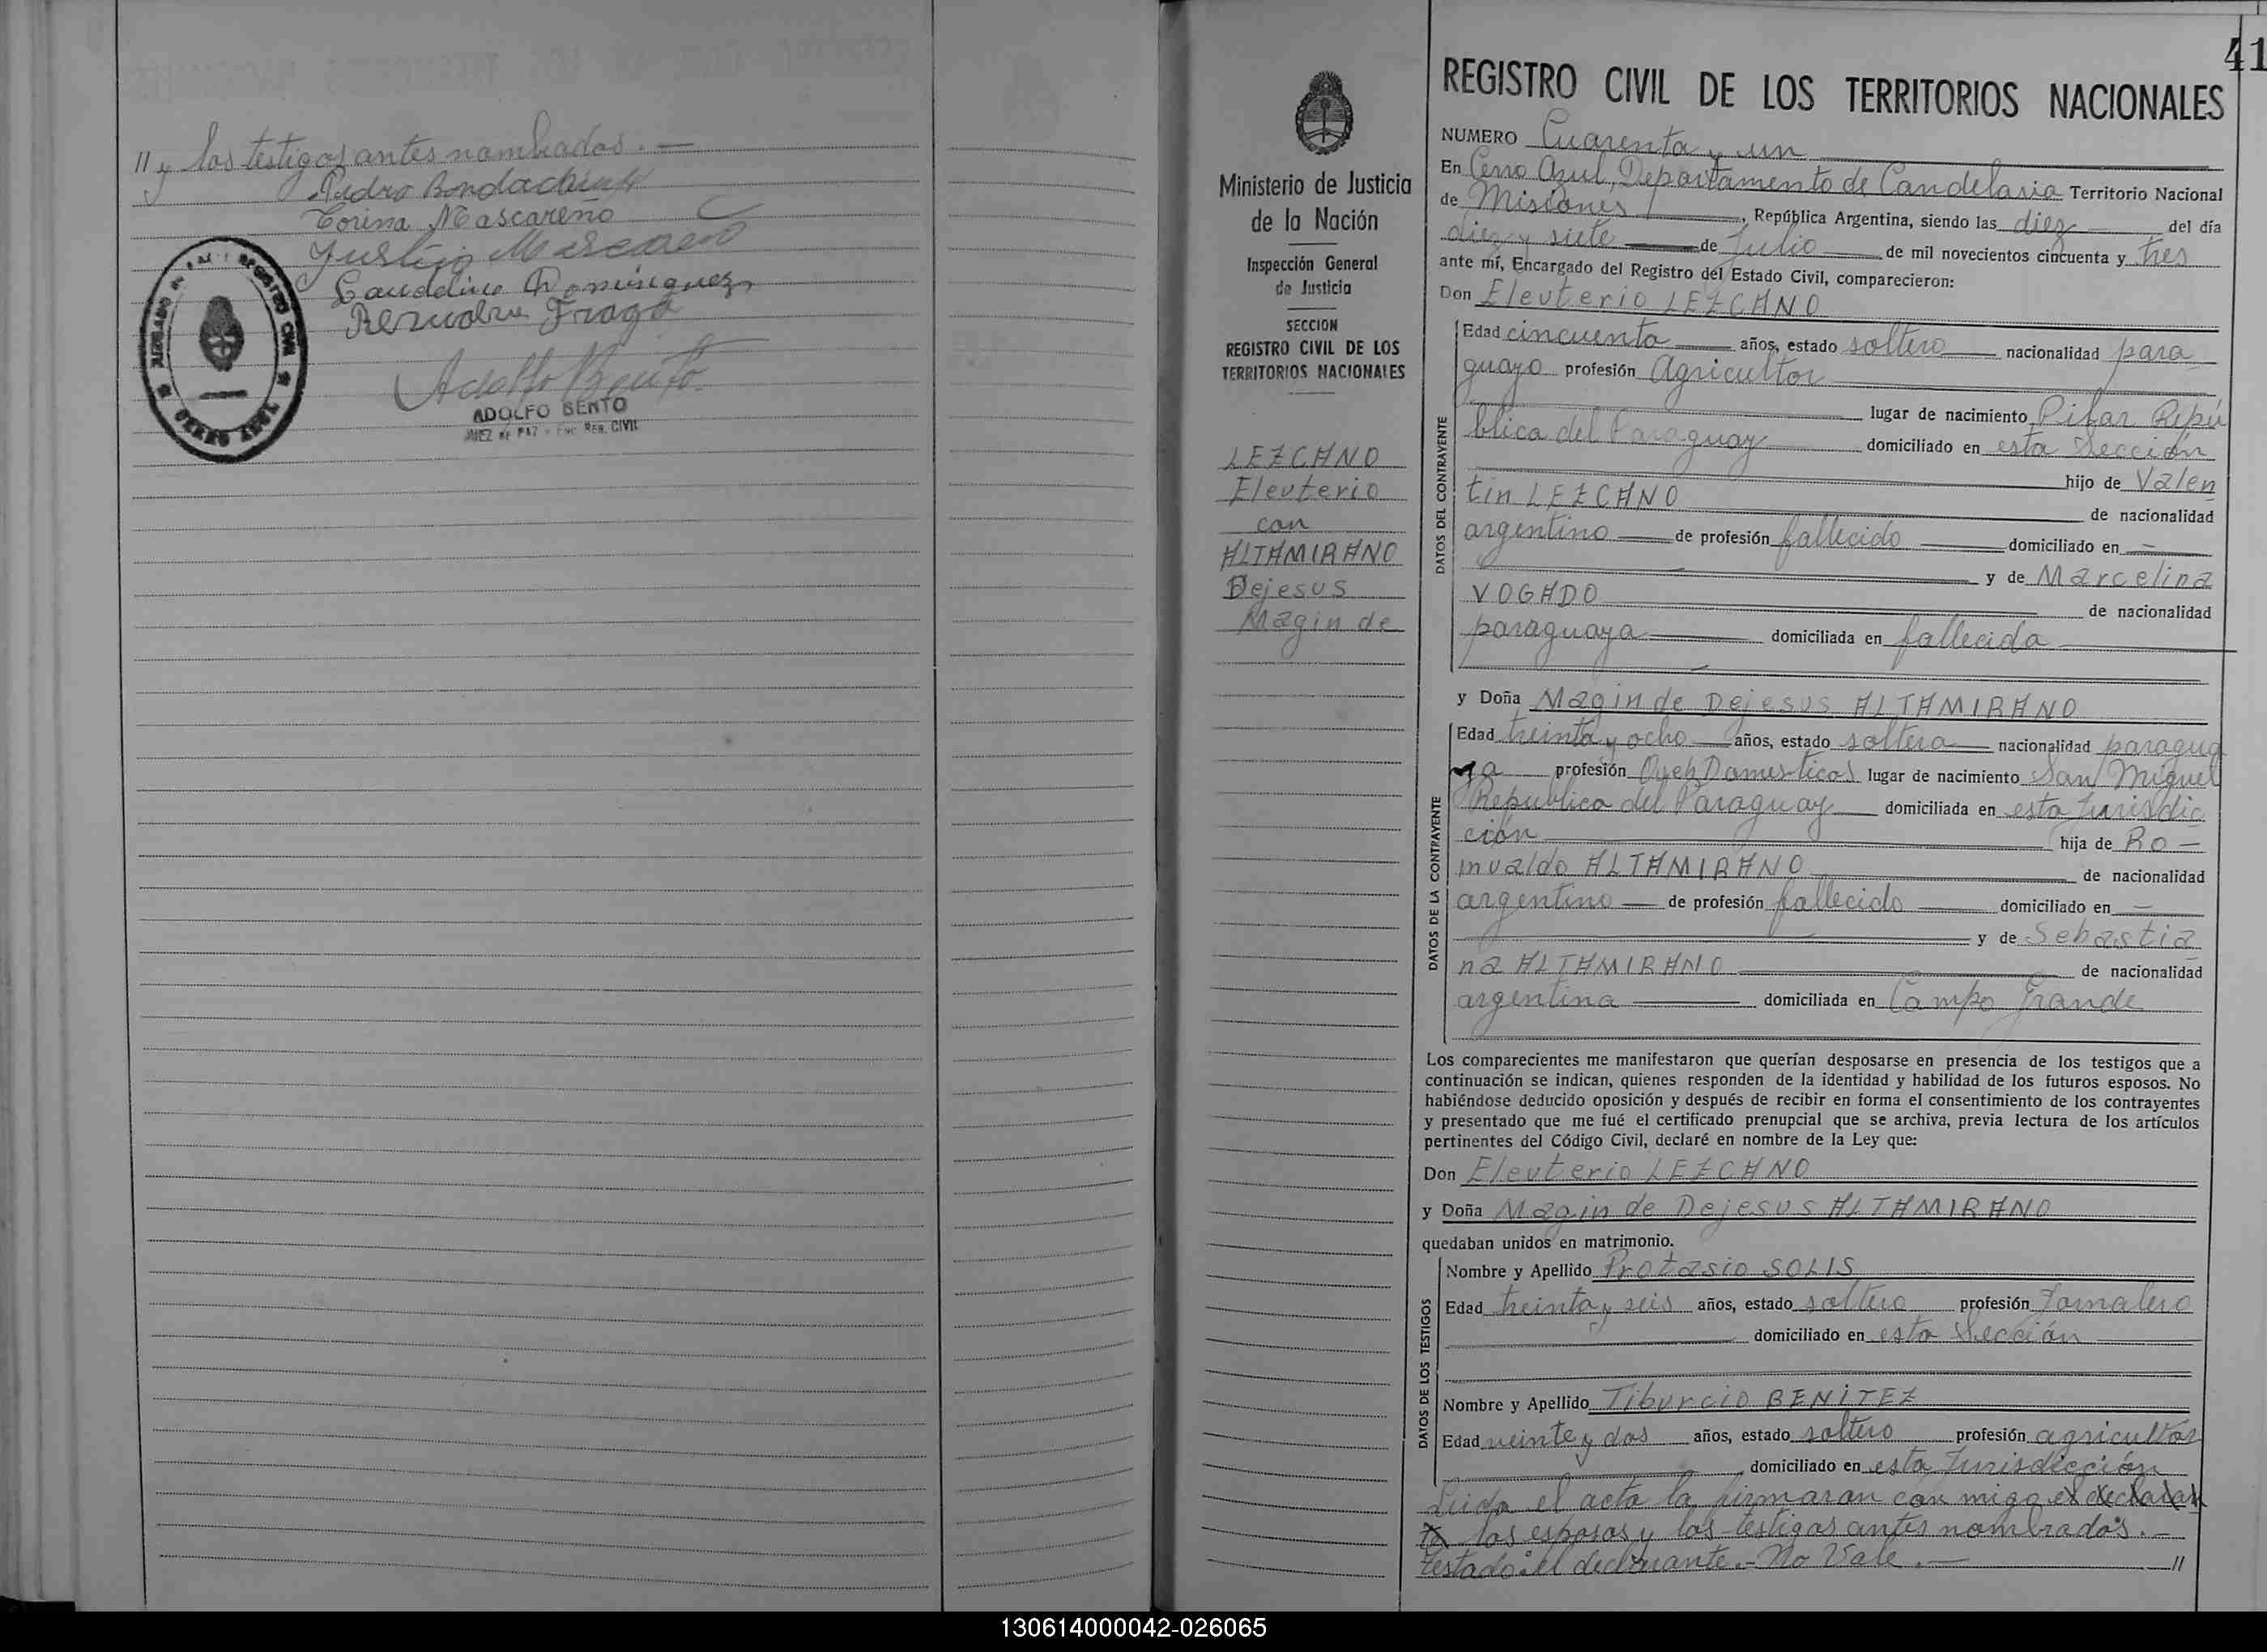 // y los testigos antes nombrados. —
Pedro Bondachiuk
Corina Mascareño
Justino Mascareño
Laudelino Dominguez
Fraga
Adolfo Bento
ADOLFO BENTO
JUEZ DE PAZ - ENC. REG. CIVIL
JUZGADO DE PAZ Y REGISTRO CIVIL
CERRO AZUL
41
Ministerio de Justicia
de la Nación
Inspección General
de Justicia
SECCION
REGISTRO CIVIL DE LOS
TERRITORIOS NACIONALES
LEZCANO
Eleuterio
con
ALTAMIRANO
Dejesus
Magin de
REGISTRO CIVIL DE LOS TERRITORIOS NACIONALES
NUMERO Cuarenta y un
En Cerro Azul, Departamento de Candelaria Territorio Nacional
de Misiones, República Argentina, siendo las diez del día
diez y siete de Julio de mil novecientos cincuenta y tres
ante mí, Encargado del Registro del Estado Civil, comparecieron:
Don Eleuterio LEZCANO
DATOS DEL CONTRAYENTE
Edad cincuenta años, estado soltero nacionalidad para
guayo profesión Agricultor
lugar de nacimiento Pilar Repú
blica del Paraguay domiciliado en esta Sección
hijo de Valen
tin LEZCANO de nacionalidad
argentino de profesión fallecido domiciliado en —
y de Marcelina
VOGADO de nacionalidad
paraguaya domiciliada en fallecida
y Doña Magin de Dejesus ALTAMIRANO
DATOS DE LA CONTRAYENTE
Edad treinta y ocho años, estado soltera nacionalidad paragua
ya profesión Queh Domesticos lugar de nacimiento San Miguel
Republica del Paraguay domiciliada en esta Jurisdic
ción hija de Ro —
mualdo ALTAMIRANO de nacionalidad
argentino de profesión fallecido domiciliado en —
y de Sebastia
na ALTAMIRANO de nacionalidad
argentina domiciliada en Campo Grande
Los comparecientes me manifestaron que querían desposarse en presencia de los testigos que a
continuación se indican, quienes responden de la identidad y habilidad de los futuros esposos. No
habiéndose deducido oposición y después de recibir en forma el consentimiento de los contrayentes
y presentado que me fué el certificado prenupcial que se archiva, previa lectura de los artículos
pertinentes del Código Civil, declaré en nombre de la Ley que:
Don Eleuterio LEZCANO
y Doña Magin de Dejesus ALTAMIRANO
quedaban unidos en matrimonio.
DATOS DE LOS TESTIGOS
Nombre y Apellido Protasio SOLIS
Edad treinta y seis años, estado soltero profesión Jornalero
domiciliado en esta Sección
Nombre y Apellido Tiburcio BENITEZ
Edad veinte y dos años, estado soltero profesión agricultor
domiciliado en esta Jurisdicción
Leida el acta la firmaran con migo el declaran
te los esposos y los testigos antes nombrados. —
testado: el declarante. - No Vale. — //
130614000042-026065